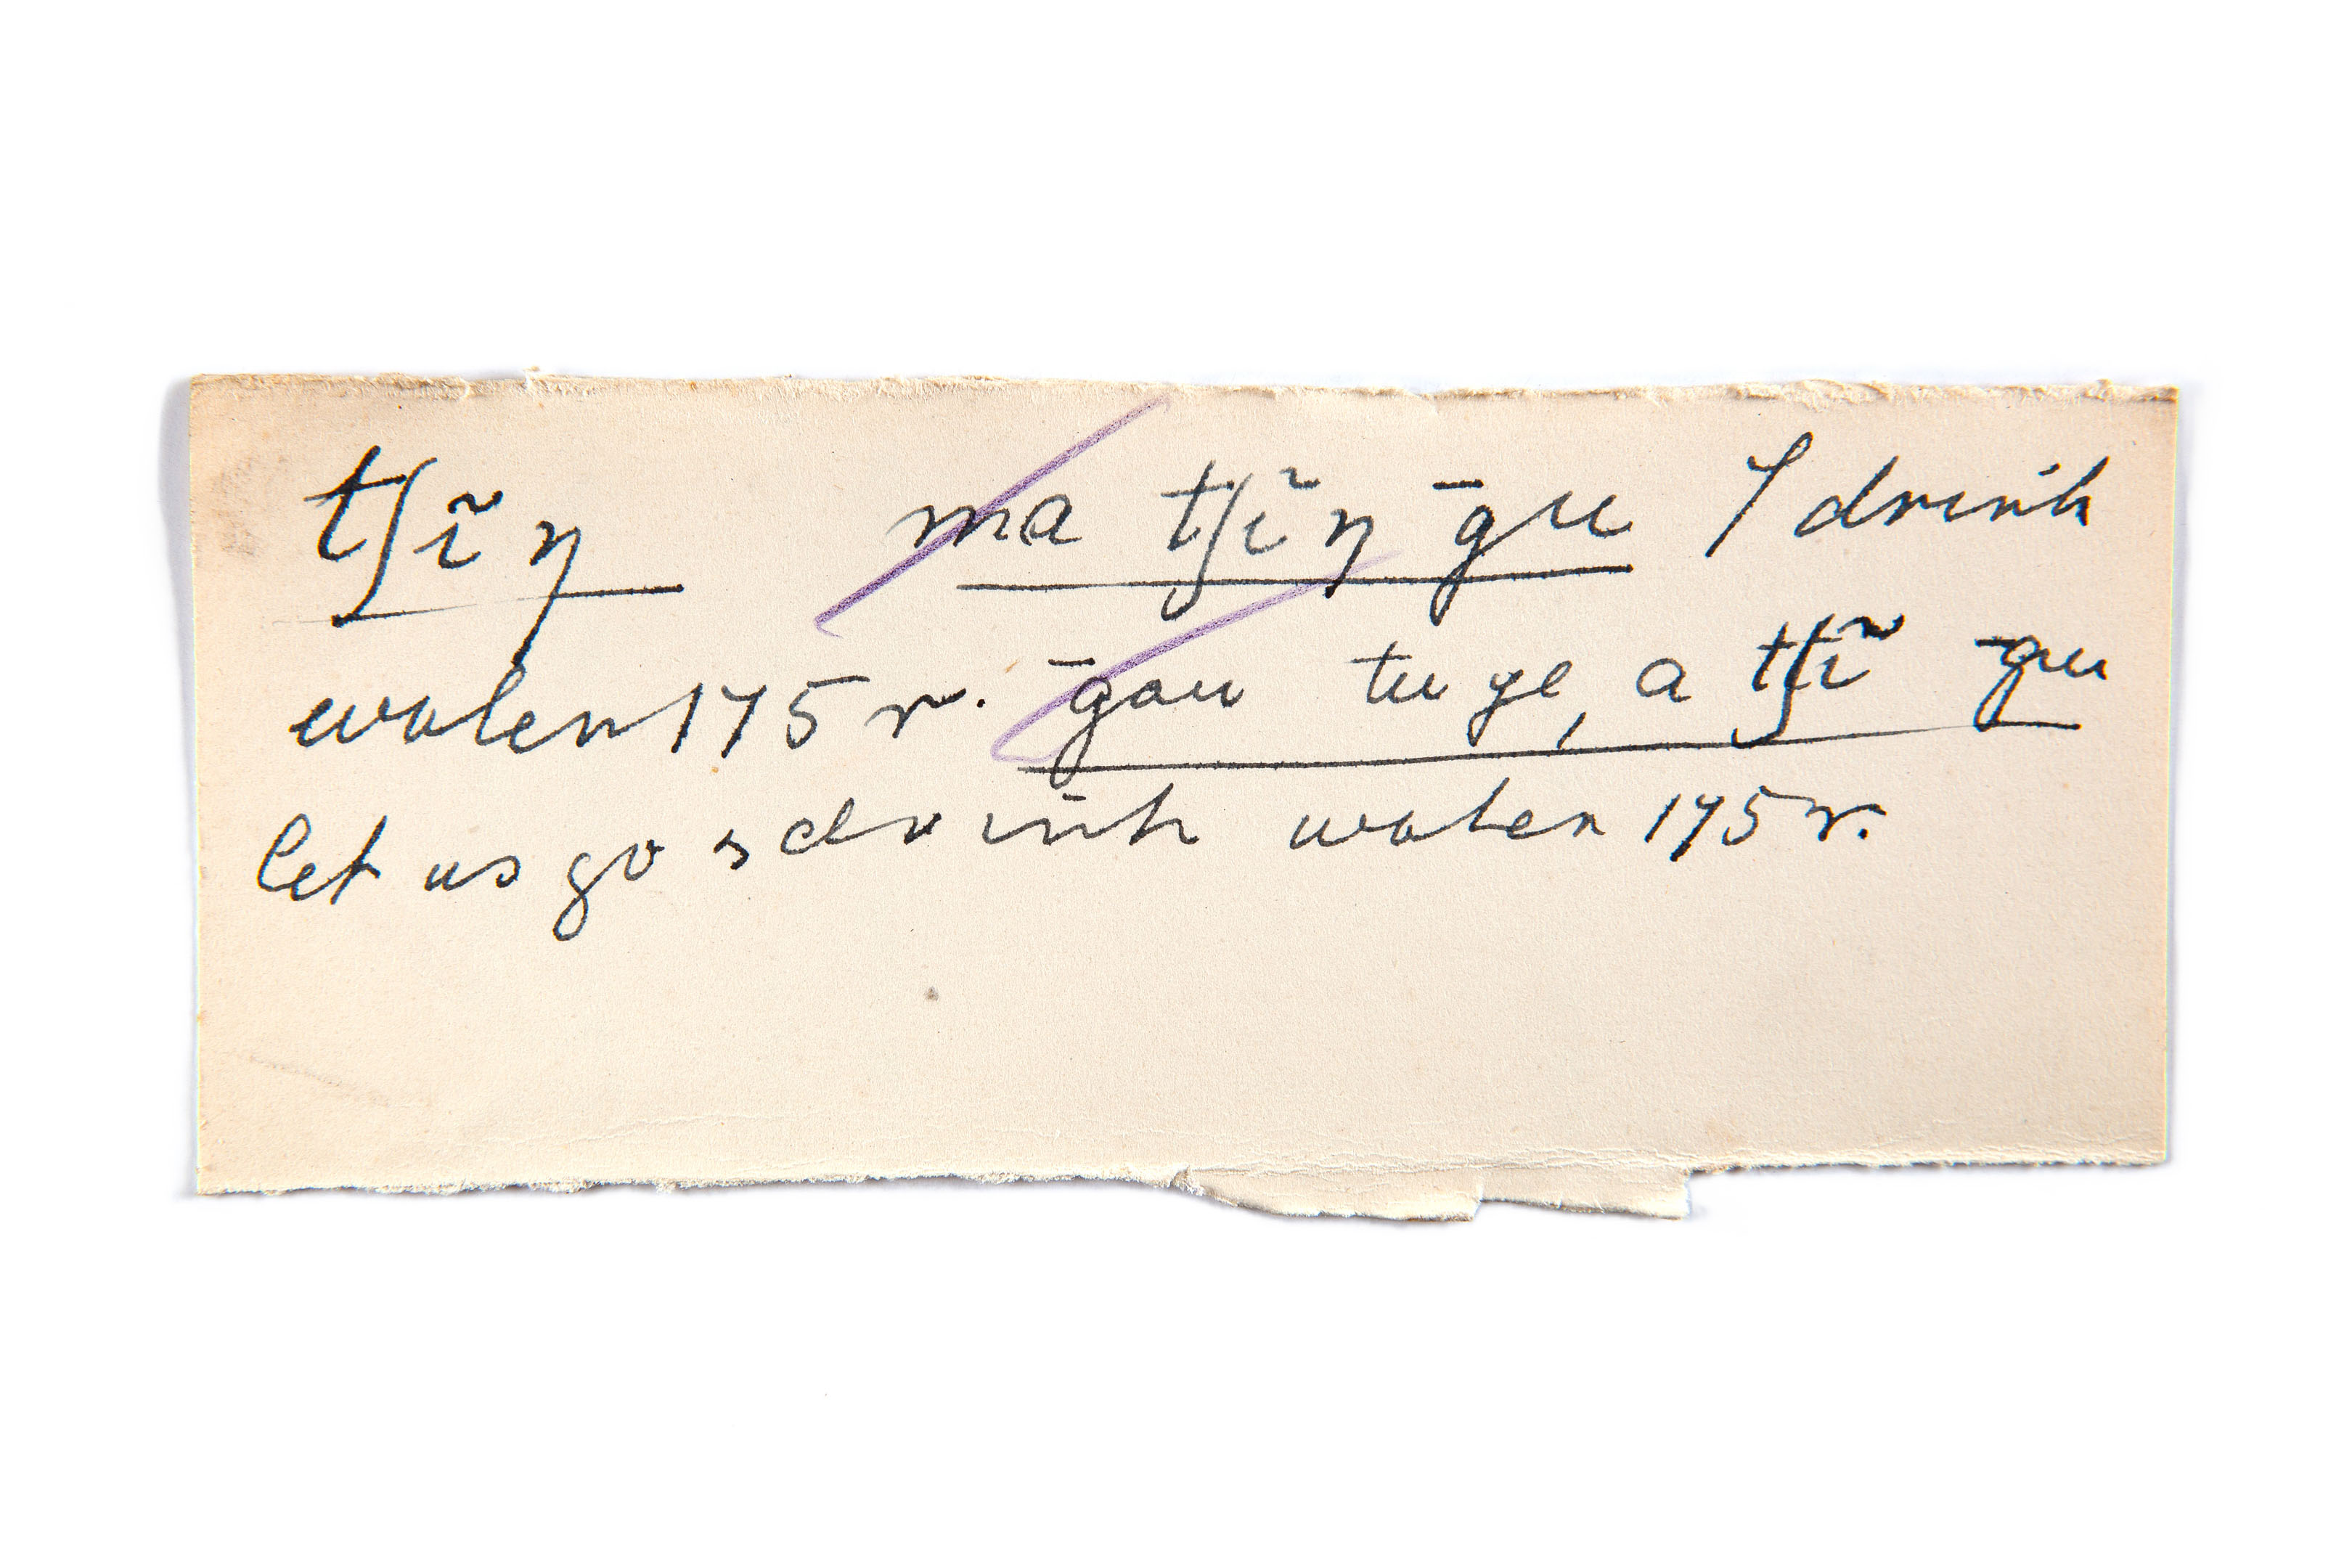 tʃĩŋ ma tʃĩŋ ḡu I drink
water 175 r. ḡau tu ge, a tʃĩ ḡu
let us go & drink water 175 r.